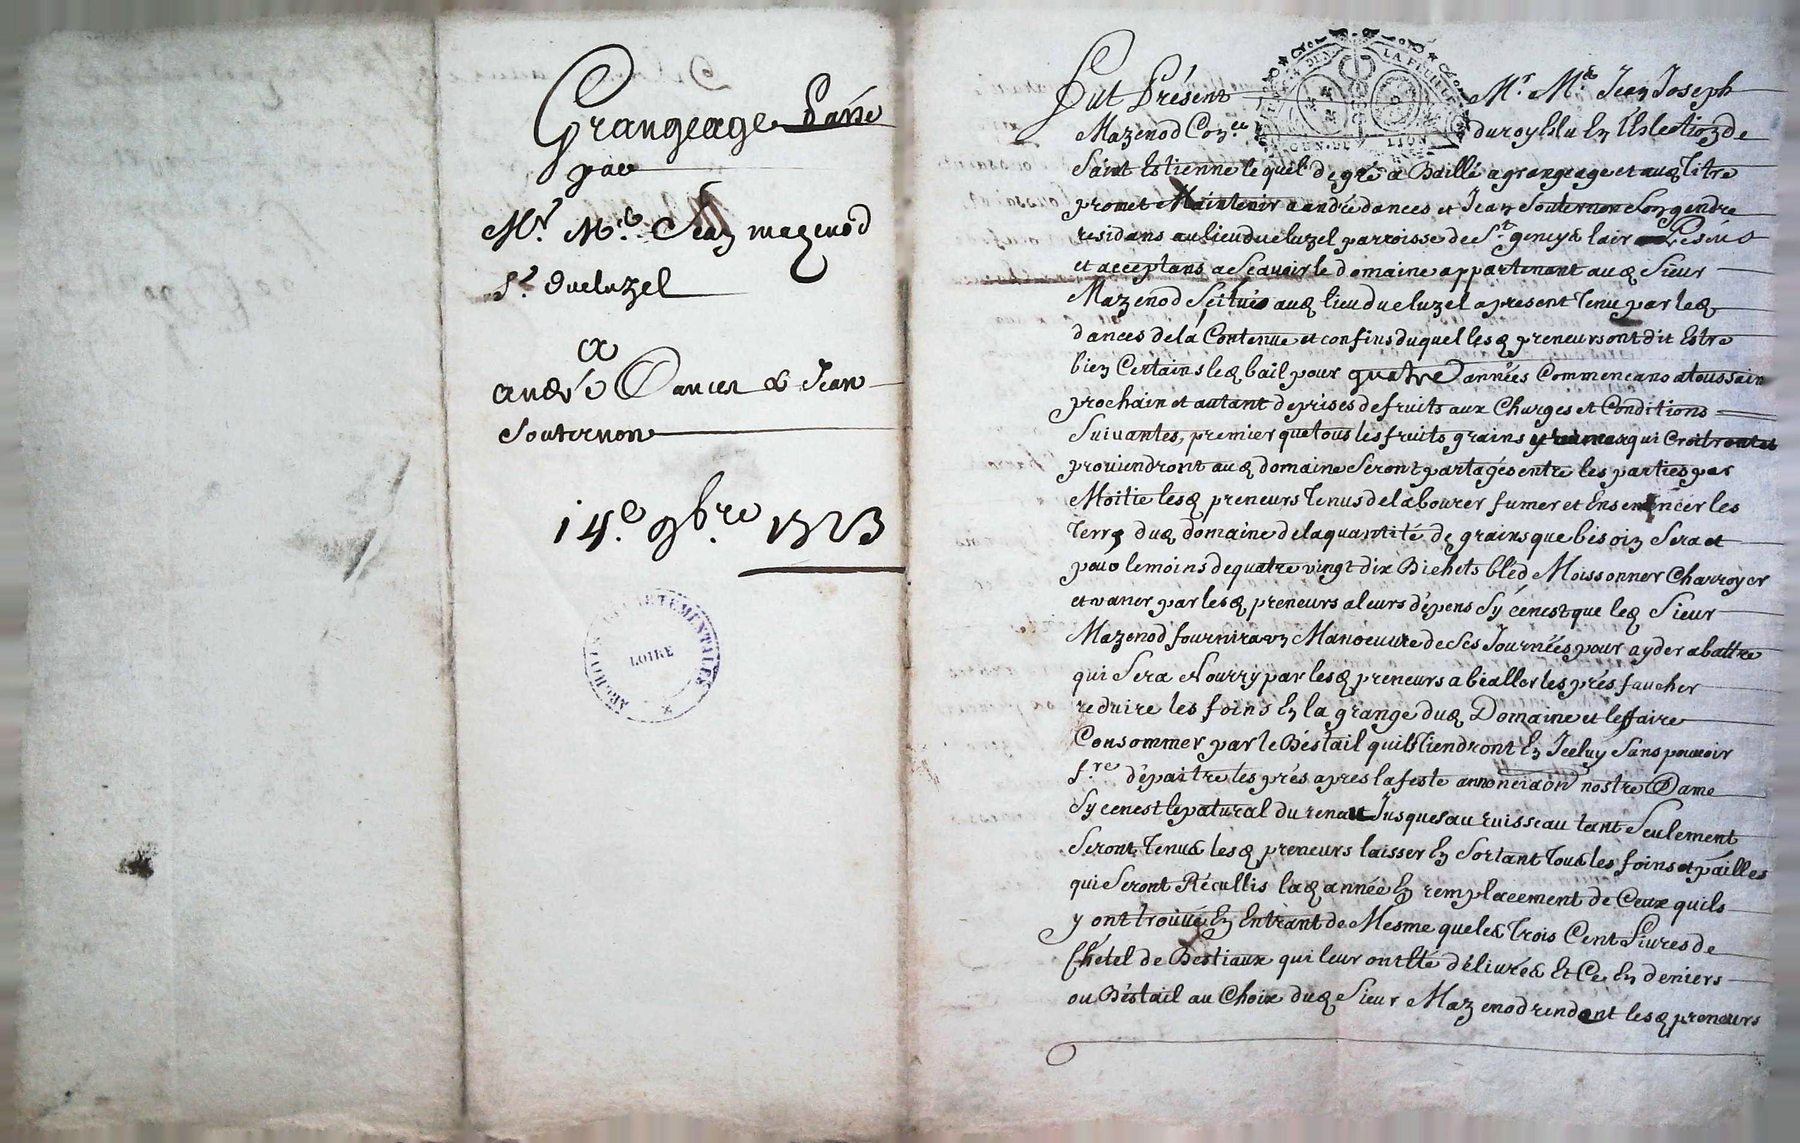 Grangeage Passé
par
Mr. Me. Jean mazenod
Sr. dueluzel
a
andré Dances & Jean
Souternon
14e. 9bre. 1723
ARCHIVES DEPARTEMENTALES
LOIRE
Fut Présent Mr. Me. Jean Joseph
Mazenod Coner. du roy Eslu En l'Eslection de
Saint Estienne lequel de gré a Baillé a grangeage et aud Titre
promet Maintenir a andré dances et Jean Souternon Son gendre
residans au lieu dueluzel parroisse de St. geneys lair
et acceptans a Scauoir le domaine appartenant aud Sieur
Mazenod Scitué aud lieu dueluzel a present Tenu par led
dances de la Contenue et confins duquel lesd preneurs ont dit Estre
bien Certains led bail pour quatre années Commencans a toussain
prochain et autant de prises de fruits aux Charges et Conditions
Suiuantes, premier que tous les fruits grains qui Croitront et
prouiendront aud domaine Seront partagés entre les parties par
Moitie lesd preneurs Tenus de labourer fumer et Ensemencer les
Terres dud domaine de la quantité de grains que besoin Sera et
pour le moins de quatre vingt dix Bichets bléd Moissonner Charroyer
et vaner par lesd preneurs a leurs dépens Sy cenest que led Sieur
Mazenod fournira un Manoeuure de Ses Journées pour ayder a battre
qui Sera Nourry par lesd preneurs a béaller les prés faucher
reduire les foins En la grange dud Domaine et les faire
Consommer par le Béstail quils tiendront En Iceluy Sans pouuoir
fre dépaitre les prés apres la feste annonciaon nostre Dame
Sy cenest le patural du renau Jusques au ruisseau tant Seulement
Seront Tenus lesd preneurs laisser En Sortant Tous les foins et pailles
qui Seront Récullis lad année En remplacement de Ceux quils
y ont trouué En Entrant de Mesme que les Trois Cent Liures de
Chetel de Bestiaux qui leur ont Eté déliurés Et Ce En deniers
ou Béstail au Choix dud Sieur Mazenod rendant lesd preneurs